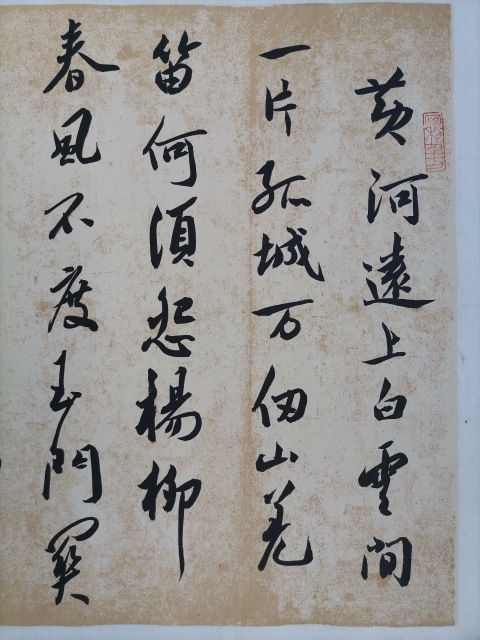 黄河遠上白雲間
一片孤城万仞山羌
笛何須怨楊柳
春風不度玉門關